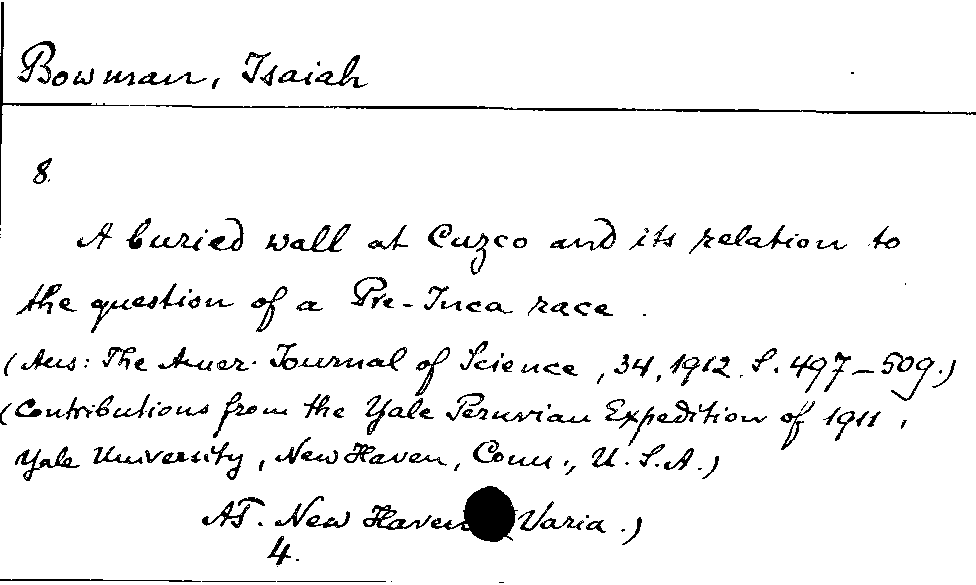 Bowman, Isaiah
8.
A buried wall at Cuzco and its relation to
the question of a Pre-Inca race.
(Aus: The Amer. Journal of Science, 34, 1912. S. 497-509.)
(Contributions from the Yale Peruvian Expedition of 1911,
Yale University, New Haven, Conn., U.S.A.)
AT. New Haven Varia.)
4.